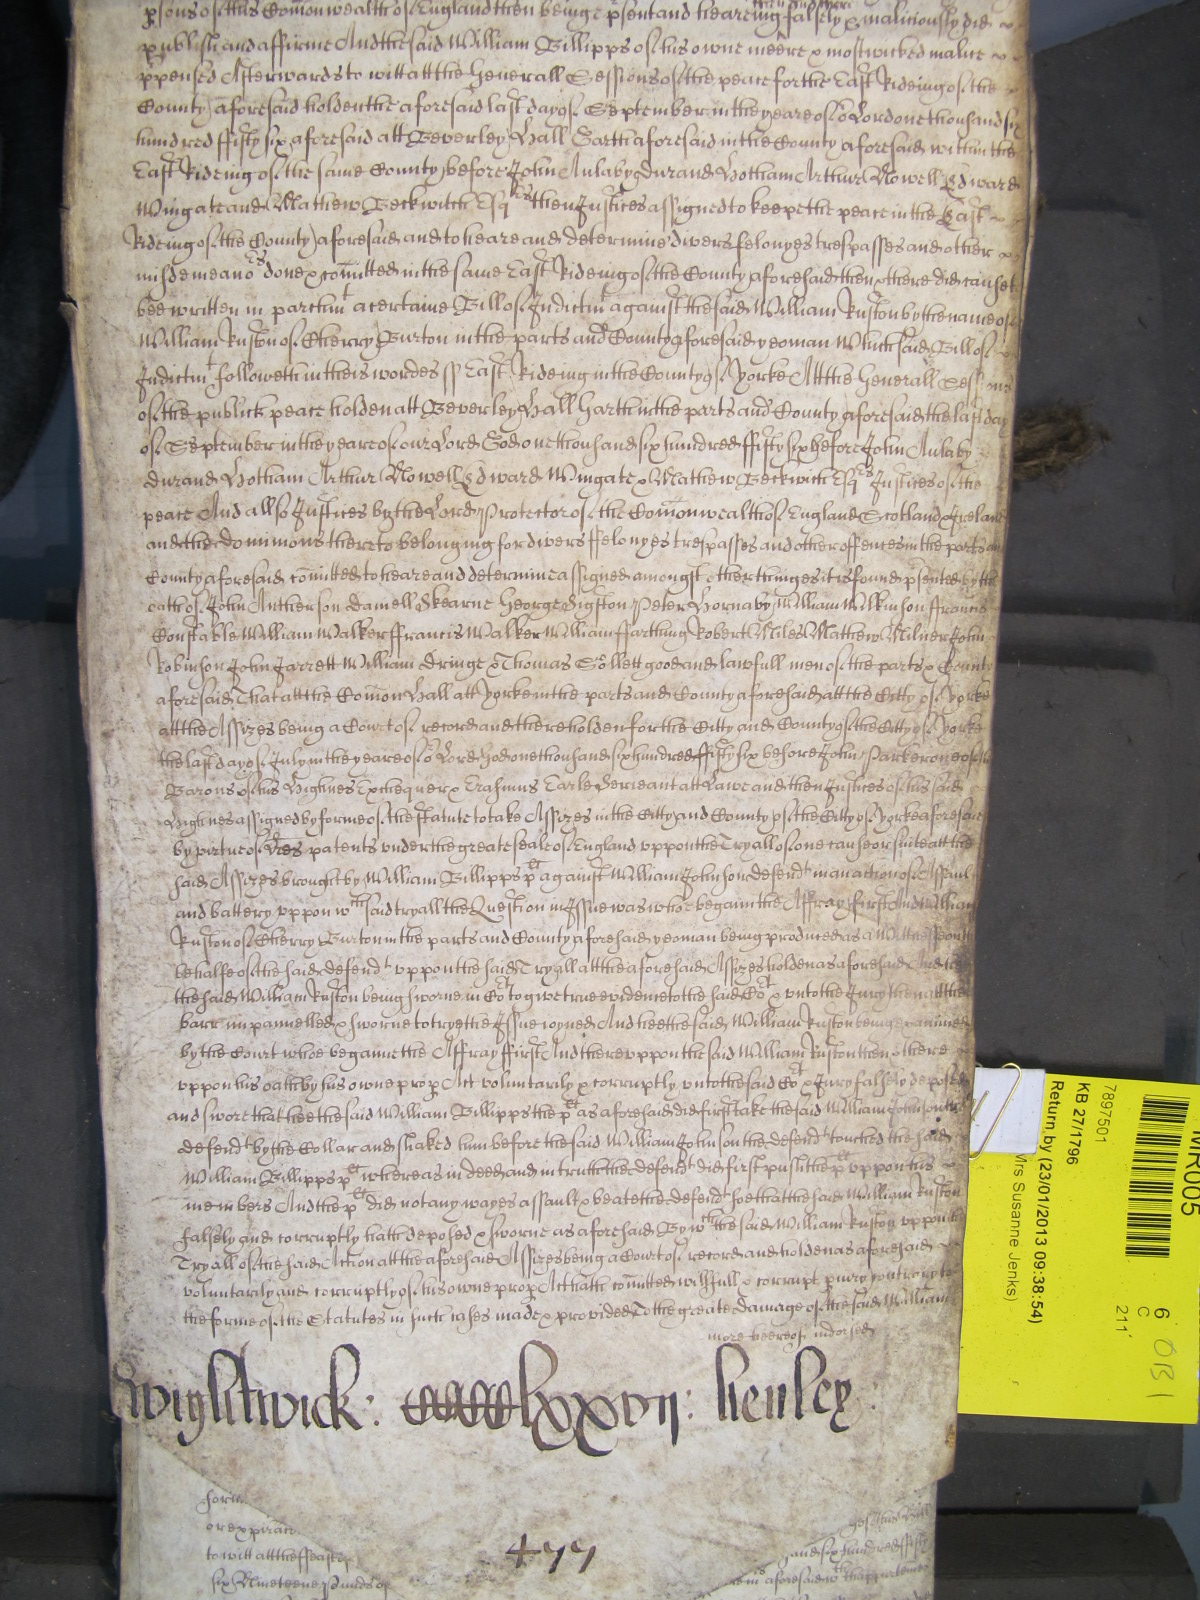 psons of this Com̄onwealth of England then being p̱sent and heareing falsely & maliciously did
publish and affirme And the said William Phillipps of his owne meere & most wicked malice
p̱pensed Afterwards to witt att the Generall Sessions of the peace for the East Rideing of the
County aforesaid holden the aforesaid last day of September in the yeare of oʳ Lord one thousand six
hundred fifty six aforesaid att Beverley Hall Garth aforesaid in the County aforesaid within the
East Rideing of the same County before John Anlaby durand Hotham Arthur Nowell Edward
Wingate and Mathew Beckwith Esqʳˢ then Justices assigned to keepe the peace in the East
Rideing of the County aforesaid and to heare and determine divers felonyes trespasses and other
misdemeanoʳˢ done & com̄itted in the same East Rideing of the County aforesaid then & there did cause
bee written in parchmᵗ a certaine Bill of Indictmᵗ against the said William Ruston by the name of
William Ruston of Cherry Burton in the parts and County aforesaid yeoman Which said Bill of
Indictmᵗ followeth in theis wordes ss East Rideing in the County of Yorke Att the Generall Sessions
of the publick peace holden att Beverley Hall Garth in the parts and County aforesaid the last day
of September in the yeare of our Lord God one thousand six hundred fifty six before John Anlaby
durand Hotham Arthur Nowell Edward Wingate & Mathew Beckwith Esqʳˢ Justices of the
peace And allso Justices by the Lord Protector of the Com̄onwealth of England Scotland & Ireland
and the dominions thereto belonging for divers ffelonyes trespasses and other offences in the parts and
County aforesaid com̄itted to heare and determine assigned amongst other thinges it is found p̱sented by the
oath of John Antherson daniell Skearne George Sigston Peter Hornaby William Wilkinson ffrancis
Constable William Walker ffrancis Walker William ffarthing Robert Miles Mathew Milner John
Robinson John Jarrett William dringe & Thomas Collett good and lawfull men of the parts & County
aforesaid That att the Com̄on Hall att Yorke in the parts and County aforesaid att the Citty of Yorke
att the Assizes being a Court of record and there holden for the Citty and County of the Citty of Yorke
the last day of July in the yeare of oʳ Lord God one thousand six hundred fifty six before John Parker one of the
Barons of his Highnes Exchequer & Erasmus Earle Serieant att Lawe and then Justices of his said
Highnes assigned by forme of the statute to take Assizes in the Citty and County of the Citty of Yorke aforesaid
by virtue of l̄res patents under the greate seale of England uppon the Tryall of one cause or suite att the
said Assizes brought by William Phillipps p̱ˡᵗ against William Johnson defendᵗ in an action of Assault
and battery uppon wᶜʰ said tryall the Question in Issue was whoe began the Affray first And William
Ruston of Cherry Burton in the parts and County aforesaid yeoman being produced as a Wittnesse on the
behalfe of the said defendᵗ uppon the said Tryall att the aforesaid Assizes holden as aforesaid And hee
the said William Ruston being sworne in Coʳᵗ to give true evidence to the said Coʳᵗ & unto the Jury then att the
barr impannelled & sworne to trye the Issue ioyned And hee the said William Ruston being examined
by the Court whoe began the Affray first And thereuppon the said William Ruston then & there
uppon his oath by his owne prop̱ Act voluntarily & corruptly unto the said Coʳᵗ & Jury falsely deposed
and swore that hee the said William Phillipps the p̱ˡᵗ as aforesaid did first take the said William Johnson the
defendᵗ by the Collar and shaked him before the said William Johnson the defendᵗ touched the said
William Phillipps p̱ˡᵗ whereas in deed and in truth the defendᵗ did first push the p̱ˡᵗ uppon his
members And the p̱ˡᵗ did not any wayes assault & beate the defendᵗ soe that the said William Ruston
falsely and corruptly hath deposed & sworne as aforesaid By wᶜʰ the said William Ruston uppon the
Tryall of the said Action att the aforesaid Assizes being a Court of record and holden as aforesaid
voluntarily and corruptly of his owne prop̱ Act hath com̄itted willfull & corrupt p̱iury contrary to
the forme of the Statutes in such cases made & provided To the greate damage of the said William
more heereof indorsed
Wightwick: CCCClxxvij: henley
477
or expirac
to witt att the ffeast
six Nineteene Pounds of
and six hundred fifty
aforesaid wᵗʰ thappurtenⁿᶜ
MR005
7897501
KB 27/1796
Return by (23/01/2013 09:38:54)
Mrs Susanne Jenks)
6
C
211
OB1